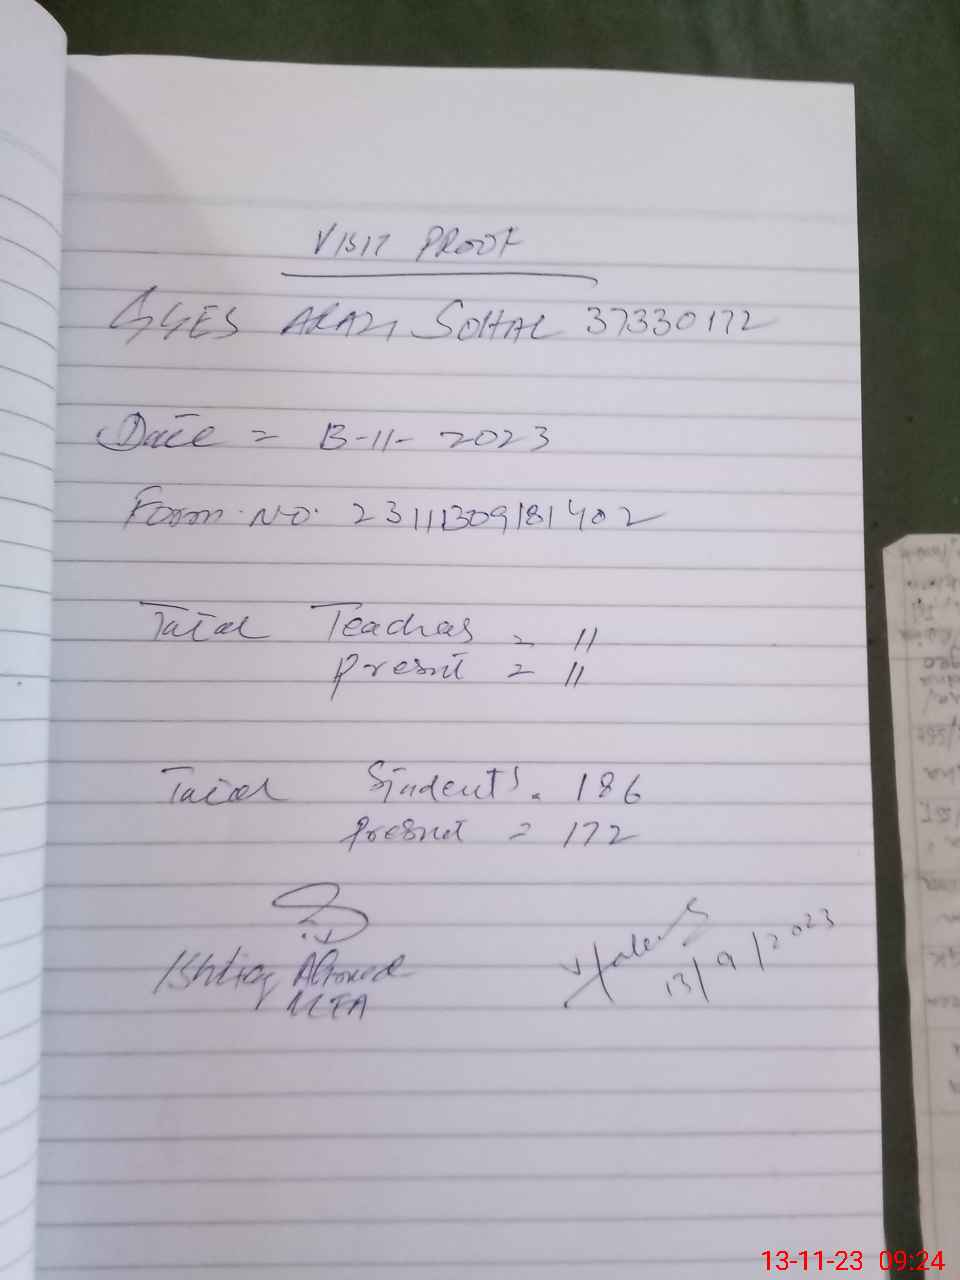 VISIT PROOF
GGES ARAZI SOHAL 37330172
Date = 13-11-2023
Form. NO. 23111309181402
Total Teachers = 11
Present = 11
Total Students = 186
Present = 172
Ishtiaq Ahmed
MEA
13/9/2023
13-11-23 09:24